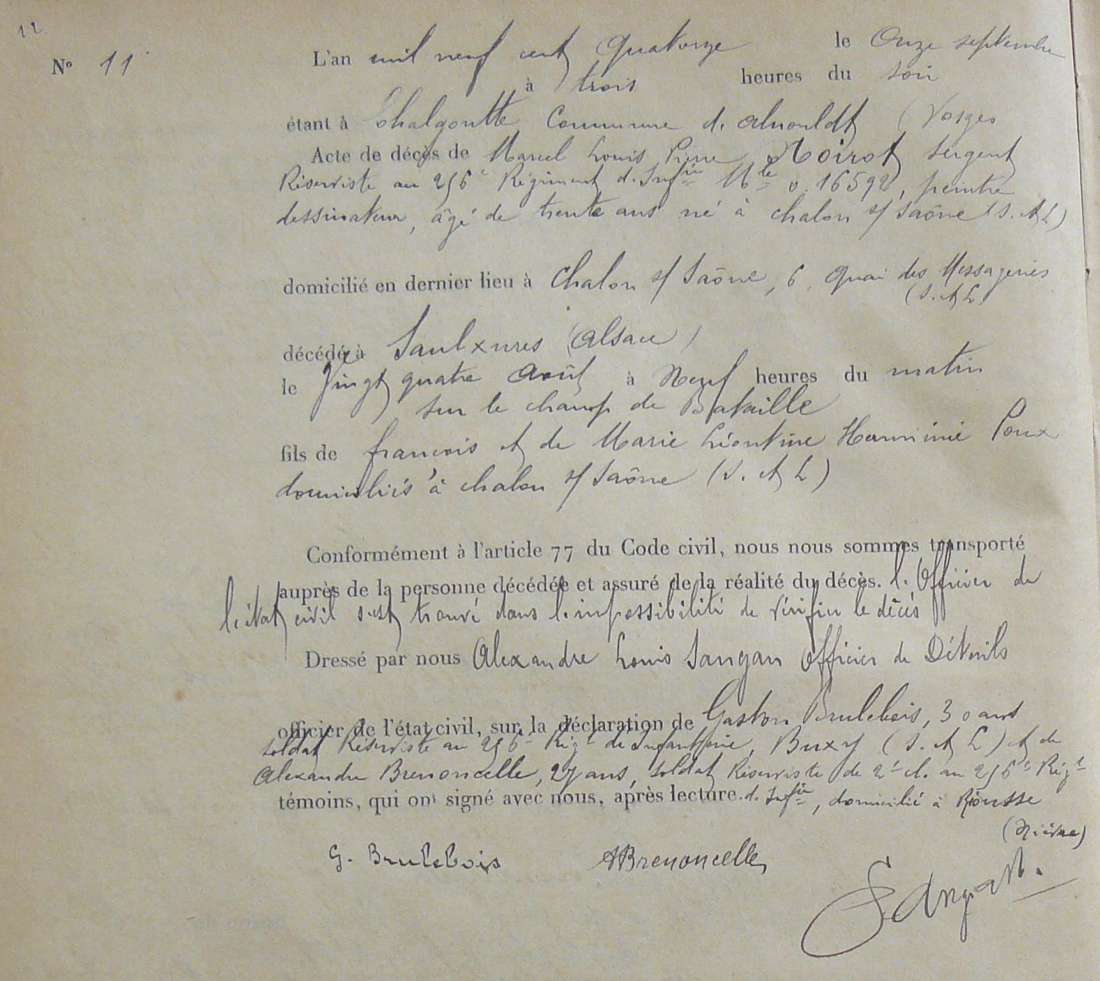 12
N° 11
L'an mil neuf cent quatorze le Onze septembre
à trois heures du soir
étant à Chalgoutte Commune d. (Vosges
Acte de décès de Marcel Louis Pierre Noirot sergent
Réserviste au 256e Régiment d. Infrie Mle 0.16592, peintre
dessinateur, âgé de trente ans né à chalon s/ Saône (S. et L)
domicilié en dernier lieu à Chalon s/ Saône, 6, Quai des Messageries
(S. et L)
décédé à Saulxures (Alsace)
le Vingt quatre Août à Neuf heures du matin
sur le champ de Bataille
fils de francois et de Marie Léontine Herminie Poux
domiciliés à chalon s/ Saône (S. et L)
Conformément à l'article 77 du Code civil, nous nous sommes transporté
auprès de la personne décédée et assuré de la réalité du décès. l. Officier de
l'état civil s'est trouvé dans l'impossibilité de vérifier le décès
Dressé par nous Alexandre Louis Sangan Officier de Détails
officier de l'état civil, sur la déclaration de Gaston Brulebois, 30 ans
soldat Réserviste au 256e Régt de Infanterie, Buxy (S. et L) et de
Alexandre Brenoncelle, 27 ans, soldat Réserviste de 2e cl. au 256e Régt
témoins, qui ont signé avec nous, après lecture. d. Infie, domicilié à Rousse
(Nièvre)
G. Brulebois ABrenoncelle
Sangan.